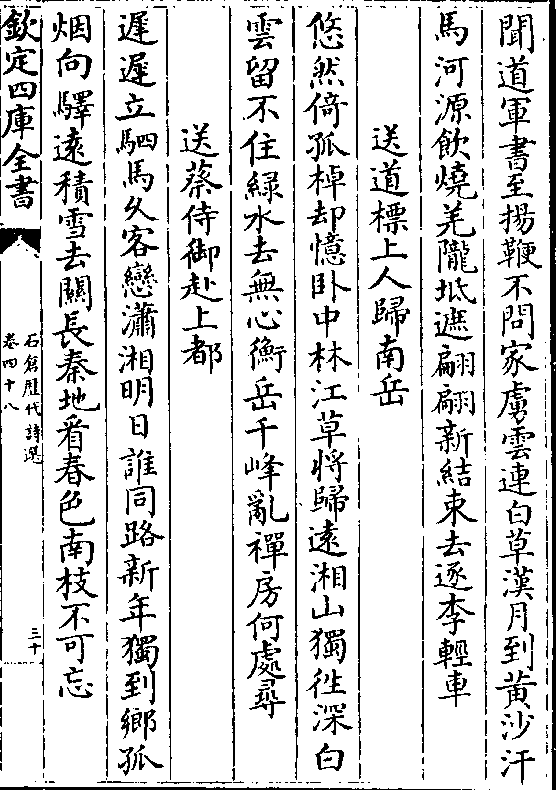 聞道軍書至揚鞭不問家虜雲連白草漢月到黄沙汗
馬河源飲燒羌隴坻遮翩翩新結束去逐李輕車
送道標上人歸南岳
悠然倚孤棹却憶卧中林江草將歸遠湘山獨徃深白
雲留不住緑水去無心衡岳千峰亂禪房何處尋
送蔡侍御赴上都
遲遲立駟馬乆客戀瀟湘明日誰同路新年獨到鄉孤
烟向驛遠積雪去關長秦地看春色南枝不可忘
欽定四庫全書
石倉歷代詩選
卷四十八
三十